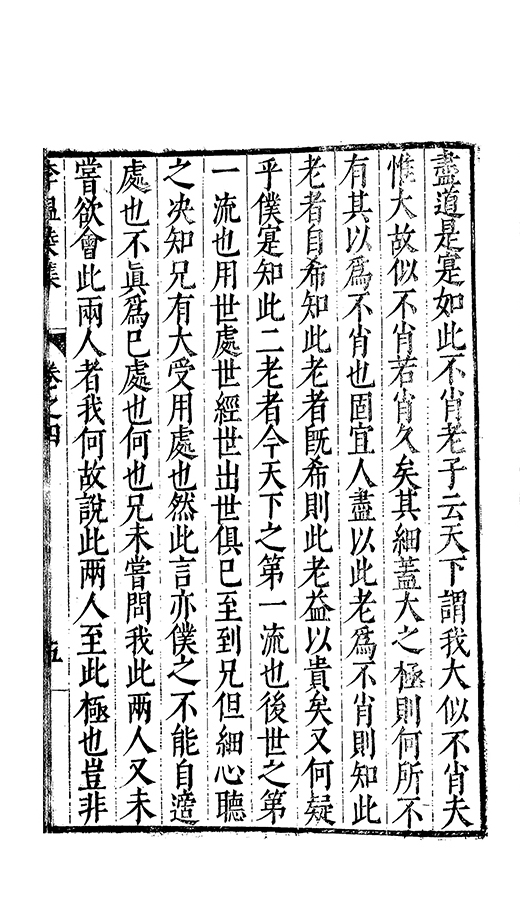 盡道是寔如此不肖老子云天下謂我大似不肖夫
惟大故似不肖若肖久矣其細蓋大之極則何所不
有其以爲不肖也固宜人盡以此老爲不肖則知此
老者自希知此老者旣希則此老益以貴矣又何疑
乎僕寔知此二老者今天下之第一流也後世之第
一流也用世處世經世出世俱已至到兄但細心聽
之决知兄有大受用處也然此言亦僕之不能自適
處也不眞爲已處也何也兄未嘗問我此兩人又未
嘗欲會此兩人者我何故說此兩人至此極也豈非
李溫陵集
卷之四
五